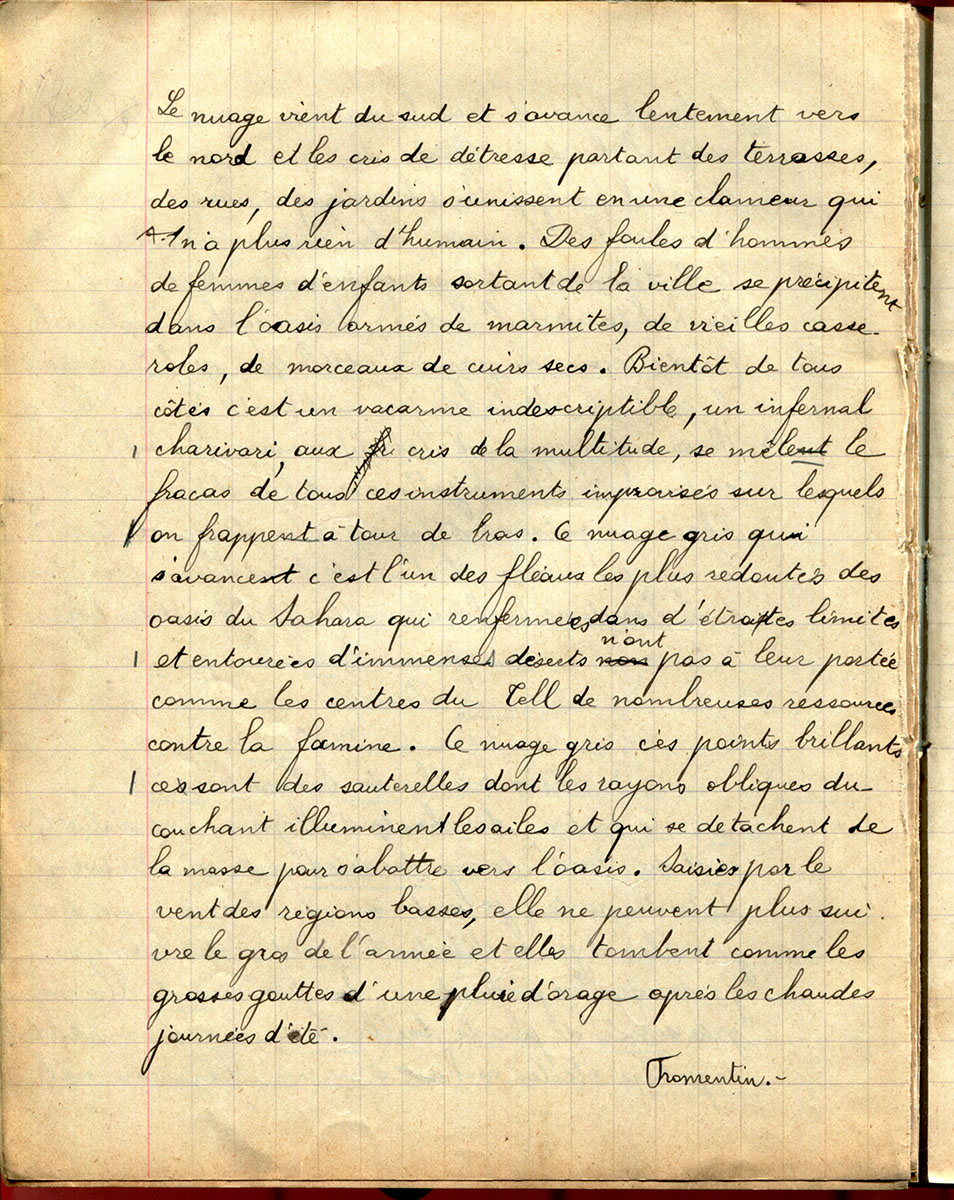 Le nuage vient du sud et s'avance lentement vers
le nord et les cris de détresse partant des terrasses,
des rues, des jardins s'unissent en une clameur qui
n'a plus rien d'humain. Des foules d'hommes
de femmes d'enfants sortant de la ville se précipitent
dans l'oasis armés de marmites, de vieilles casse-
roles, de morceaux de cuirs secs. Bientôt de tous
côtés c'est un vacarme indescriptible, un infernal
charivari, aux cris de la multitude, se mêlent le
fracas de tous ces instruments improvisés sur lesquels
on frappent à tour de bras. Ce nuage gris qui
s'avancent c'est l'un des fléaux les plus redoutés des
oasis du Sahara qui renfermées dans d'étroites limites
n'ont
et entourées d'immenses déserts non pas à leur portée
comme les centres du Tell de nombreuses ressources
contre la famine. Ce nuage gris ces points brillants
ces sont des sauterelles dont les rayons obliques du
couchant illuminent les ailes et qui se detachent de
la masse pour s'abattre vers l'oasis. Saisies par le
vent des régions basses, elle ne peuvent plus sui-
vre le gros de l'armée et elles tombent comme les
grosses gouttes d'une pluie d'orage après les chaudes
journées d'été.
Fromentin.-